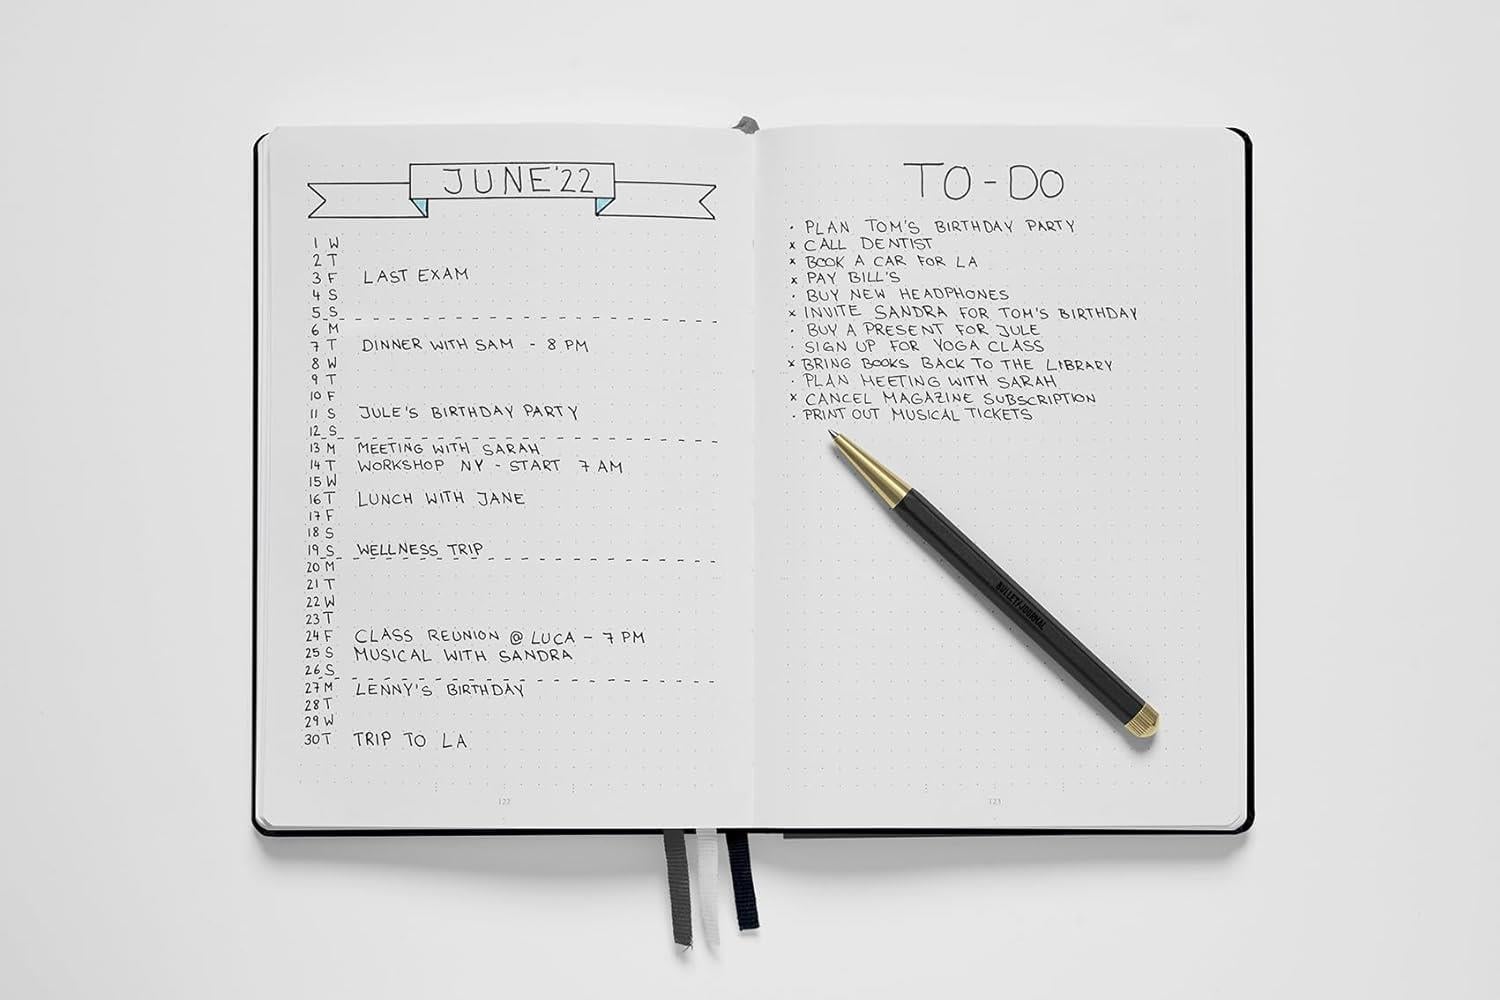 JUNE'22
1 W
2 T
3 F LAST EXAM
4 S
5 S
6 M
7 T DINNER WITH SAM - 8 PM
8 W
9 T
10 F
11 S JULE'S BIRTHDAY PARTY
12 S
13 M MEETING WITH SARAH
14 T WORKSHOP NY - START 7 AM
15 W
16 T LUNCH WITH JANE
17 F
18 S
19 S WELLNESS TRIP
20 M
21 T
22 W
23 T
24 F CLASS REUNION @ LUCA - 7 PM
25 S MUSICAL WITH SANDRA
26 S
27 M LENNY'S BIRTHDAY
28 T
29 W
30 T TRIP TO LA
122
TO-DO
· PLAN TOM'S BIRTHDAY PARTY
x CALL DENTIST
x BOOK A CAR FOR LA
x PAY BILL'S
· BUY NEW HEADPHONES
x INVITE SANDRA FOR TOM'S BIRTHDAY
· BUY A PRESENT FOR JULE
· SIGN UP FOR YOGA CLASS
x BRING BOOKS BACK TO THE LIBRARY
· PLAN MEETING WITH SARAH
x CANCEL MAGAZINE SUBSCRIPTION
· PRINT OUT MUSICAL TICKETS
BULLET JOURNAL
123